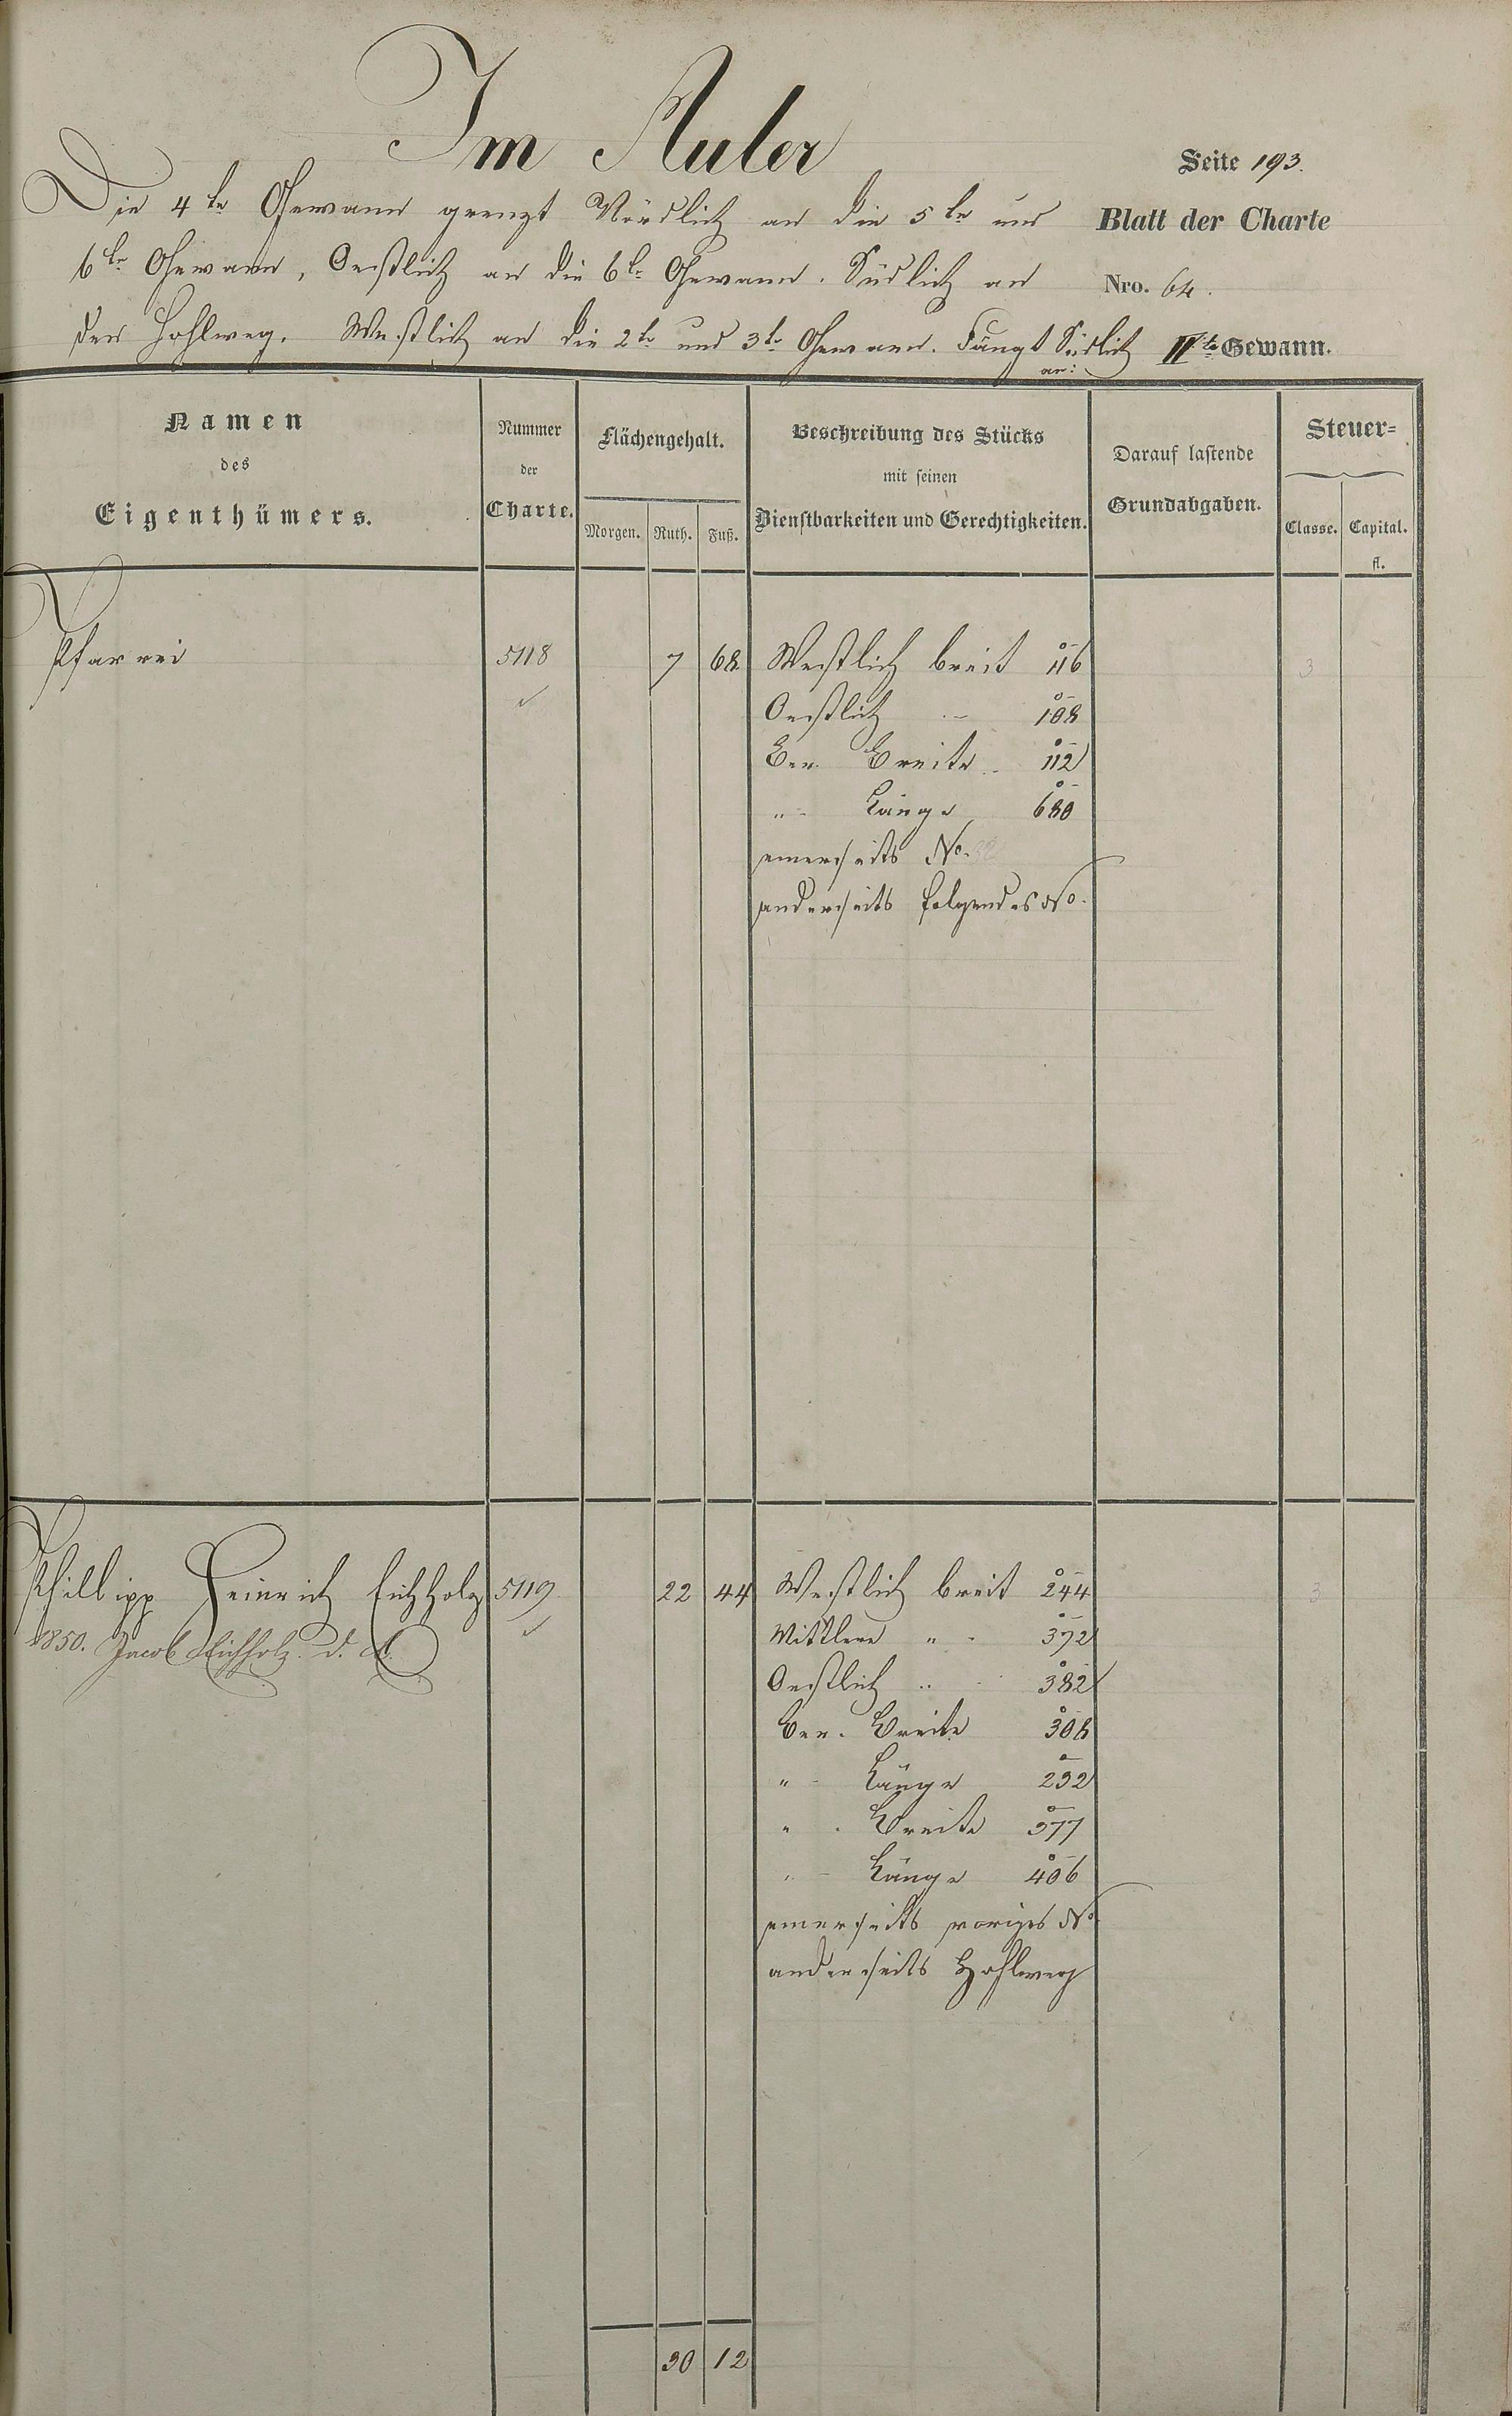 Im Auler
Seite 193.
Die 4te Gewann grenzt Nördlich an die 5te und
Blatt der Charte
6te Gewann, Oestlich an die 6te Gewann. Südlich an
Nro. 64.
den Hohlweg. Westlich an die 2te und 3te Gewann. Fängt Südlich an:
IVte Gewann.
Namen
des
Eigenthümers.
Nummer
der
Charte.
Flächengehalt.
Morgen. Ruth. Fuß.
Beschreibung des Stücks
mit seinen
Dienstbarkeiten und Gerechtigkeiten.
Darauf lastende
Grundabgaben.
Steuer=
Classe. Capital.
fl.
Pfarrei 5118 7 68 Westlich breit 116 3
Oestlich - 108
Ber. Breite 112
" Länge 680
einerseits No.
anderseits folgendes No.
Phillipp Heinrich Eichholz 5119 22 44 Westlich breit 244 3
1850. Jacob Eichholz d. A.
Mittlere " 372
Oestlich " 382
Ber. Breite 308
" Länge 232
" Breite 377
" Länge 406
einerseits voriges No
anderseits Hohlweg
30 12